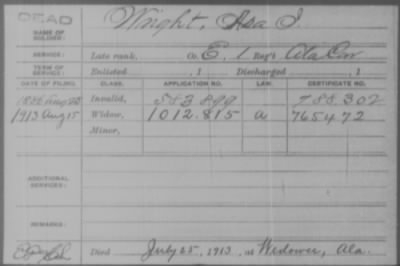 DEAD
NAME OF SOLDIER: Wright, Asa I.
SERVICE: Late rank, Co. E, 1 Reg't Ala Cav
TERM OF SERVICE: Enlisted , 1 Discharged , 1
DATE OF FILING. CLASS. APPLICATION NO. LAW. CERTIFICATE NO.
Aug Invalid, 583.899 788.302
1913 Aug 15 Widow, 1012.815 a 765472
Minor,
ADDITIONAL SERVICES:
REMARKS:
Died July 25, 1913, at Wedowee, Ala.